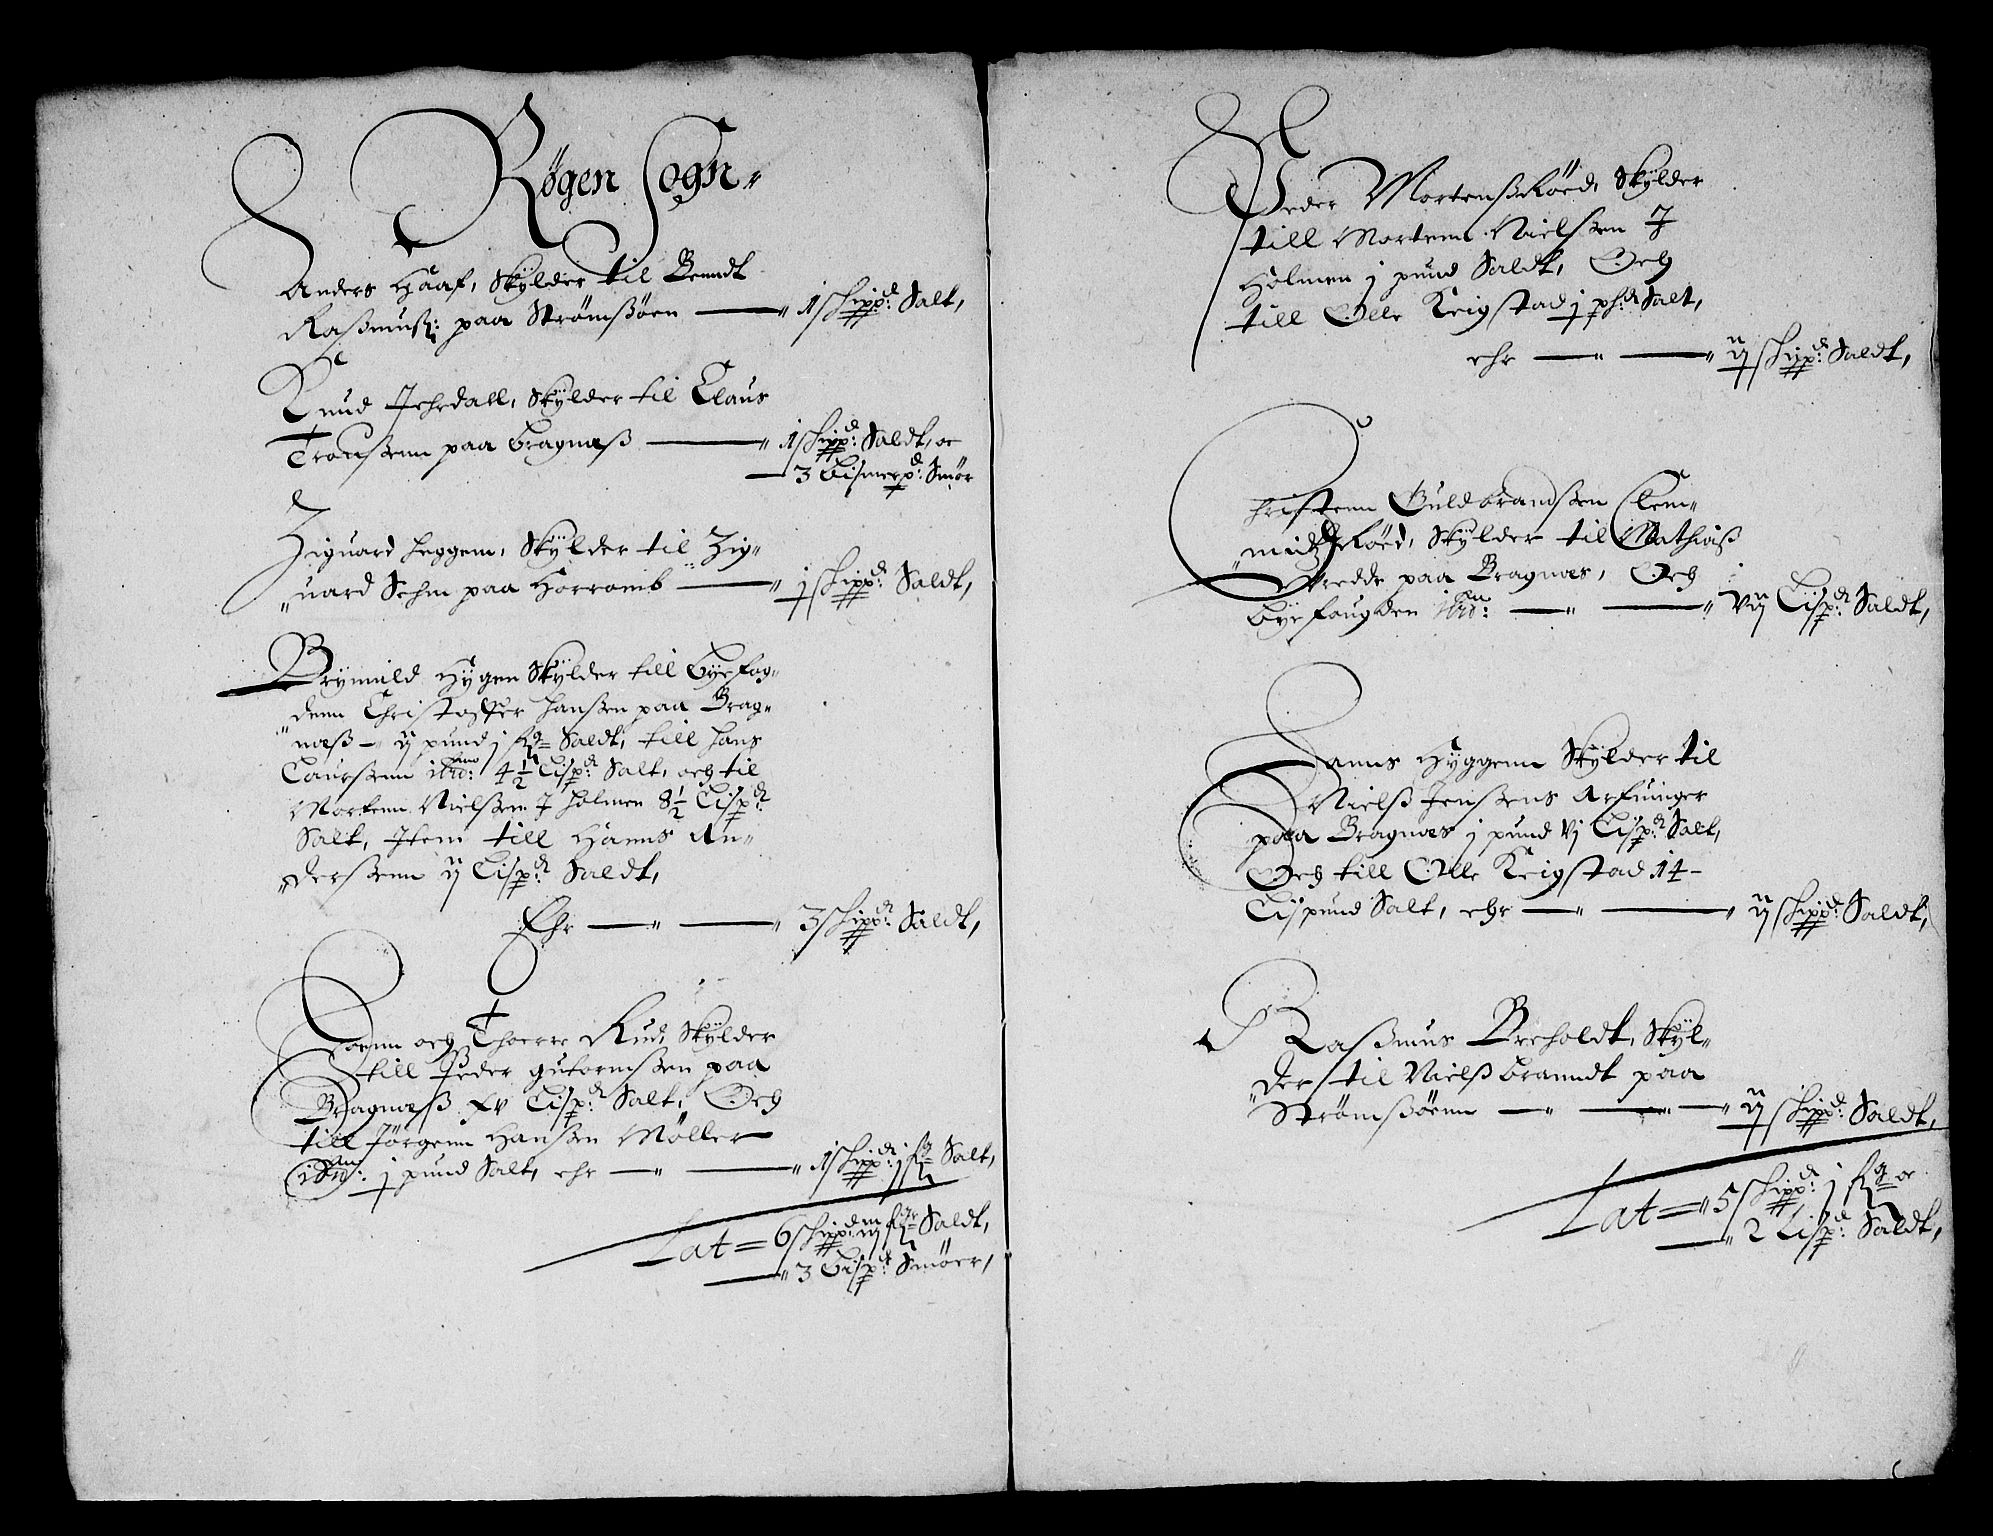 Røgen Sogn
Anders Haaf, Skylder til Berndt
Rasmuß: paa Strømsøen — 1 schippd: Salt,
Knud Jehrdall, Skylder til Claus
Tronßenn paa Bragneß — 1 schippd: Saldt, oc
— 3 Bismerpd: Smør
Ziguard Heggem, Skylder til Zig-
uard Sehm paa Horromb — j schippd: Saldt,
Brÿnnild Hÿgen Skÿlder till bÿefog-
denn Christoffer Hanßen paa Brag-
neß — ij pund j fr: Saldt, till Hans
Laurßenn ibid: 4½ Lispd: Salt, och til
Morten Nielßenn J Holmen 8½ Lispd:
Salt, Jtem till Hanns An-
derßenn ij Lispd: Saldt,
Ehr — 3 schippd: Saldt,
och Thoerre Rud, Skÿlder
till Peder gutormßen paa
Bragneß xv Lispd: Salt, Och
till Jørgenn Hanßen Møller
ibid: j pund Salt, ehr — 1 schippd: j fr: Salt,
Lat = 6 schippd: iij fr: Saldt,
— 3 Bispd: Smøer,
Peder Mortensrøed, Skÿlder
till Mortenn Nielßen J
Holmen j pund Saldt, Och
till Olle Keigstad j phd: Salt,
ehr — ij schippd: Saldt,
Christenn Guldbrandßen Clem-
midtzrøed, Skÿlder til Mathiaß
Wredde paa Bragnes, Och
bÿefougden ibid: — vij Lispd: Saldt,
Hanns Hÿggenn Skÿlder til
Nielß Jenßens Arfuinger
paa Bragnes j pund vj Lispd: Salt,
Och till Olle Keigstad 14
Lispund Salt, ehr — ij schippd: Saldt,
Rasmus Breholdt, Skÿl-
der til Nielß brandt paa
Strømsøenn — ij schippd: Saldt,
Lat = 5 schippd: j fr: oc
— 2 Lispd: Saldt,